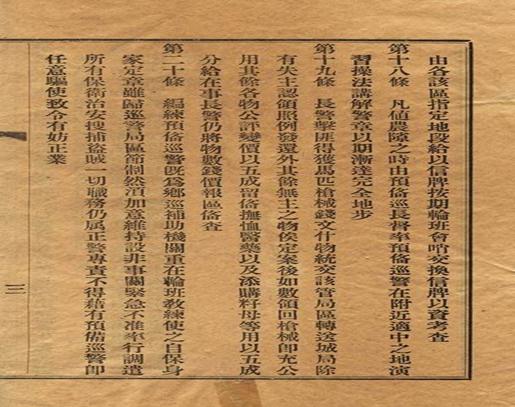 由各該區指定地段給以信牌按期輪班會哨交換信牌以資考查
第十八條　凡值農隙之時由預備巡長督率預備巡警在附近適中之地演
習操法講解警章以期漸達完全地步
第十九條　長警擊匪得獲馬匹槍械錢文什物統交該管局區轉送城局除
有失主認領照例發還外其餘無主之物俟定案後如數領回槍械即充公
用其餘各物公評變價以五成留備撫恤醫藥以及添購籽母等用以五成
分給在事長警仍將物數錢價報區備查
第二十條　編練預備巡警既為鄉巡補助機關重在輪班教練使之自保身
家定章雖歸巡警局區節制然須加意維持設非事關緊急不准率行調遣
所有保衛治安搜捕盜賊一切職務仍属正警專責不得藉有預備巡警即
任意驅使致令有妨正業
三